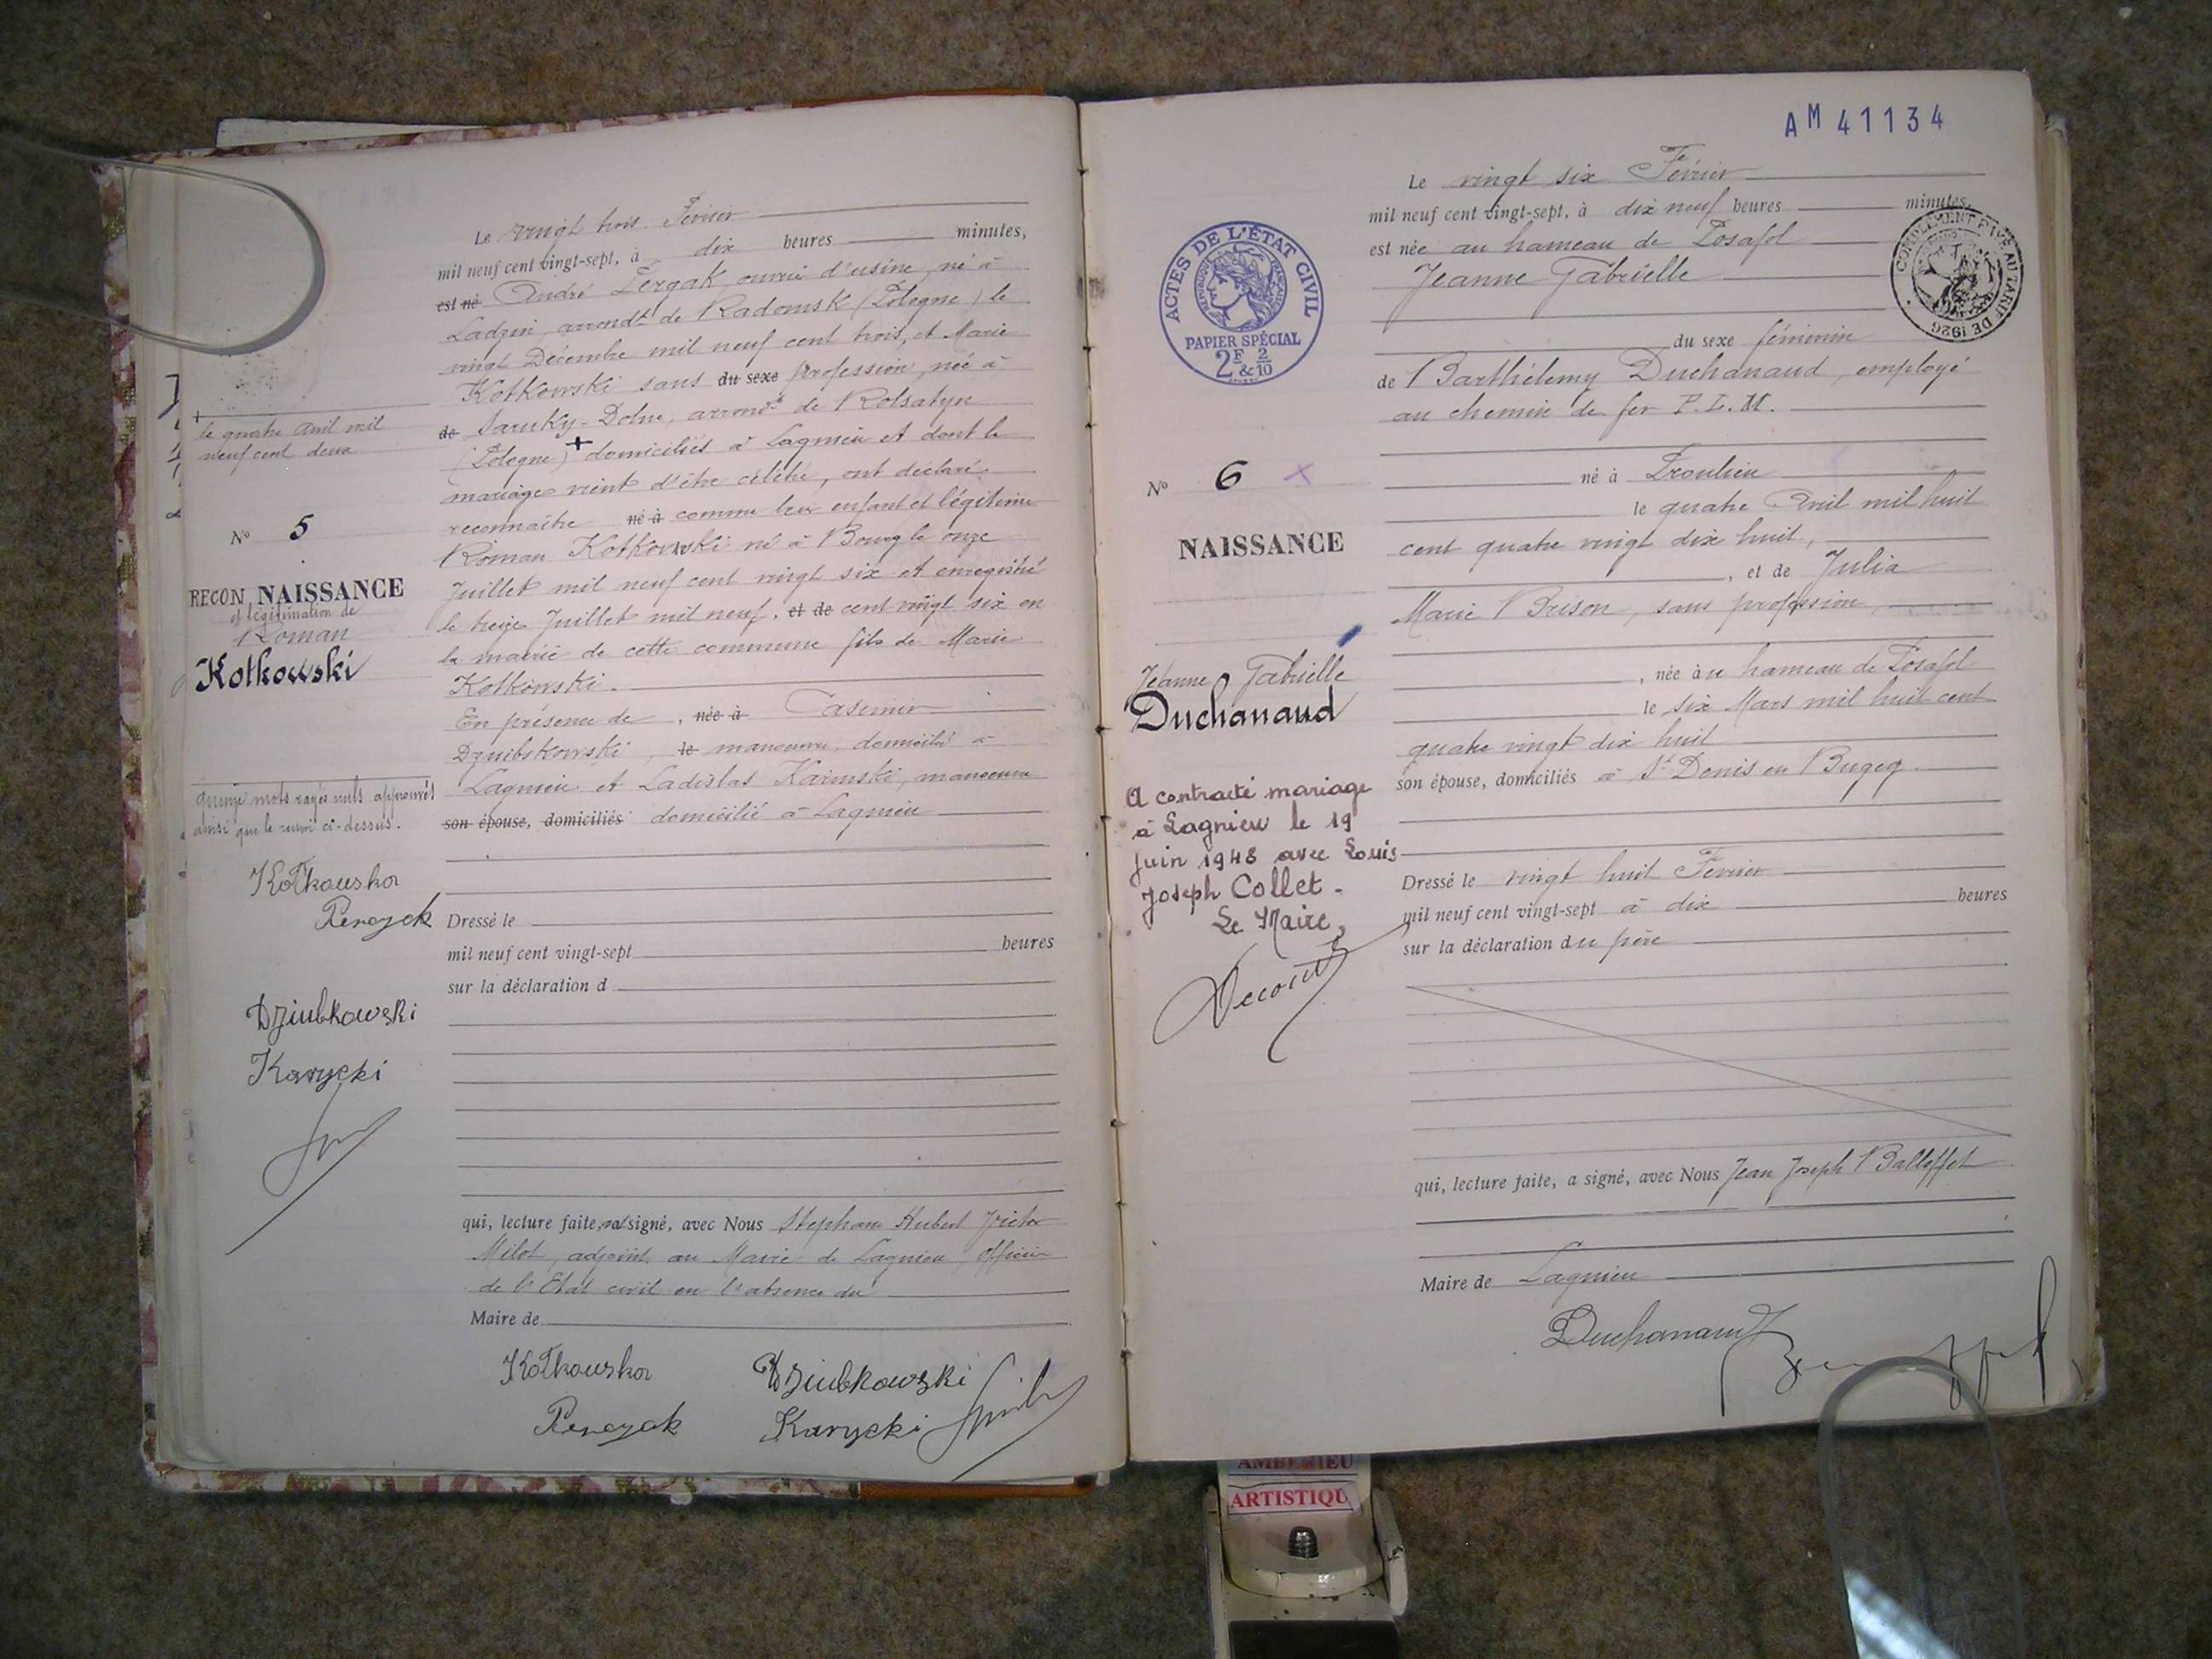 Le vingt trois Février
mil neuf cent vingt-sept, à dix heures minutes,
est né André Pergak ouvrier d'usine, né à
Ladzin, arrondt de Radomsk (Pologne) le
vingt Décembre mil neuf cent trois, et Marie
Kotkowski sans du sexe profession, née à
de Saruky-Dolne, arrondt de Rohatyn
(Pologne) + domiciliés à Lagnieu et dont le
mariage vient d'être célébré, ont déclaré
reconnaître né à comme leur enfant et légitimer
Roman Kotkowski né à Bourg le onze
Juillet mil neuf cent vingt six et enregistré
le treize Juillet mil neuf, et de cent vingt six en
la mairie de cette commune fils de Marie
Kotkowski.
En présence de , née à Casimir
Dzuibskowski, le manoeuvre, domicilié à
Lagnieu et Ladislas Karinski, manoeuvre
son épouse, domiciliés domicilié à Lagnieu
Dressé le
mil neuf cent vingt-sept heures
sur la déclaration d
qui, lecture faite, signé, avec Nous Stephane Hubert Victor
Milot, adjoint au Maire de Lagnieu, officier
de l'Etat civil en l'absence du
Maire de
Kotkouska
Perczak
Dziubkowski
Karycki
+
le quatre Avril mil
neuf cent deux
No 5
RECON NAISSANCE
et légitimation de
Roman
Kotkowski
quinze mots rayés nuls approuvés
ainsi que le renvoi ci-dessus.
Kotkouska
Perczak
Dziubkowski
Karycki
AM 41134
ACTES DE L'ÉTAT CIVIL
RÉPUBLIQUE FRANÇAISE
PAPIER SPÉCIAL
2F & 2/10
COMPLÉMENT PAYÉ AU TARIF DE 1926
Le vingt six Février
mil neuf cent vingt-sept, à dix neuf heures minutes,
est née au hameau de Posafol
Jeanne Gabrielle
du sexe féminin
de Barthélemy Duchanaud, employé
au chemin de fer P.L.M.
né à Proulieu
le quatre Avril mil huit
cent quatre vingt dix huit,
, et de Julia
Marie Brison, sans profession
, née au hameau de Posafol
le six Mars mil huit cent
quatre vingt dix huit
son épouse, domiciliés à St Denis en Bugey
Dressé le vingt huit Février
mil neuf cent vingt-sept à dix heures
sur la déclaration du père
qui, lecture faite, a signé, avec Nous Jean Joseph Balloffet
Maire de Lagnieu
Duchanaud
No 6 x
NAISSANCE
Jeanne Gabrielle
Duchanaud
A contracté mariage
à Lagnieu le 19
Juin 1948 avec Louis
Joseph Collet.
Le Maire,
AMBERIEU
ARTISTIQU